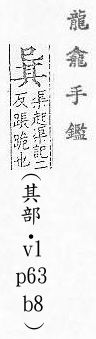 龍龕手鑑
㠱渠起渠記二
反跪也
(其部·v1
p63
b8)